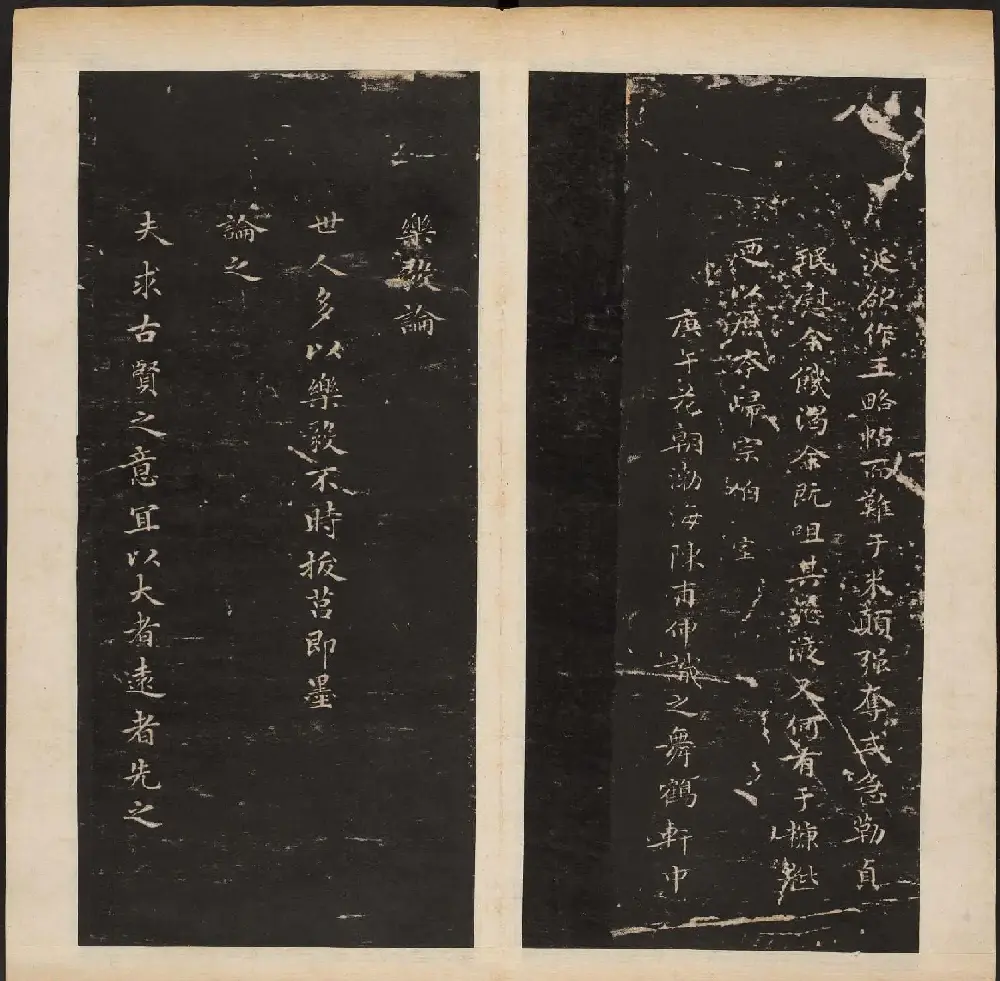 涎欲作王略帖而難于米顛强奪或急勒貞
珉慰余饑渴余既咀其又何有于糠
以舊本歸宗伯
庚午花朝渤海陳甫伸誠之舞鶴軒中
樂毅論
世人多以樂毅不時拔莒即墨
論之
夫求古賢之意宜以大者遠者先之